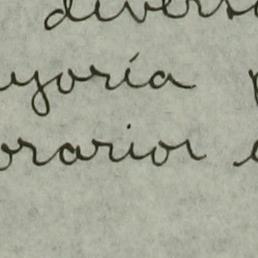 divers
yoría
orarios